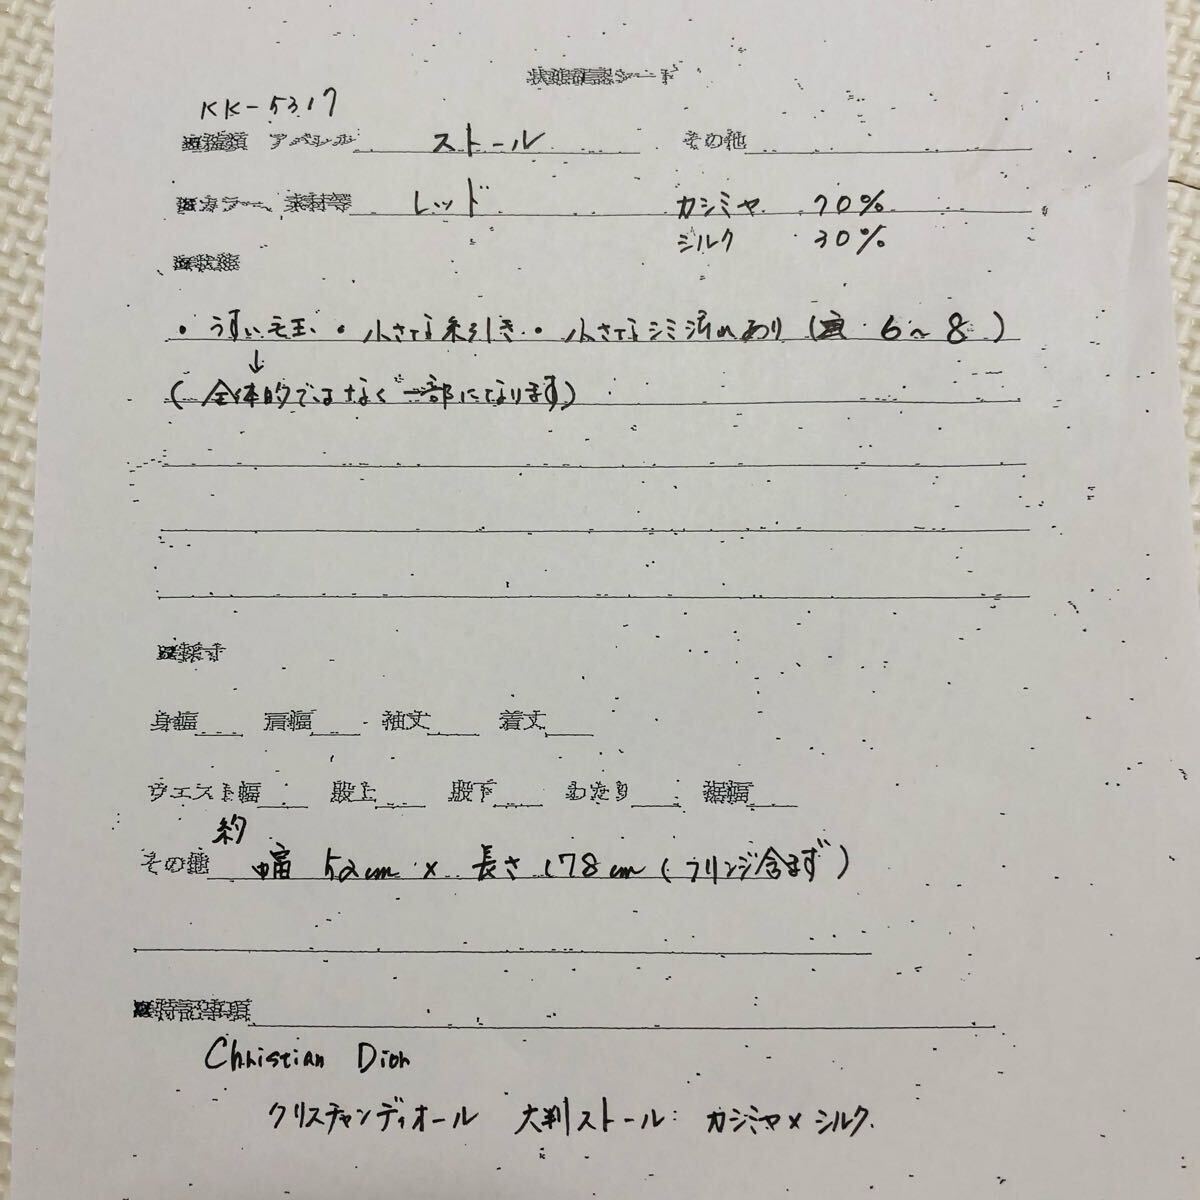 状態確認シート
KK-5317
種類 アパレル ストール その他
カラー、素材等 レッド カシミヤ 70%
シルク 30%
状態
・うすい毛玉、・小さな糸引き・・小さなシミ汚れあり( 6~8 )
↓
(全体的ではなく一部になります)
採寸
身幅 肩幅 袖丈 着丈
ウエスト幅 股上 股下 わたり 裾幅
約
その他 幅 52cm × 長さ 178cm (フリンジ含まず)
特記事項
Christian Dior
クリスチャンディオール 大判ストール: カシミヤ×シルク.